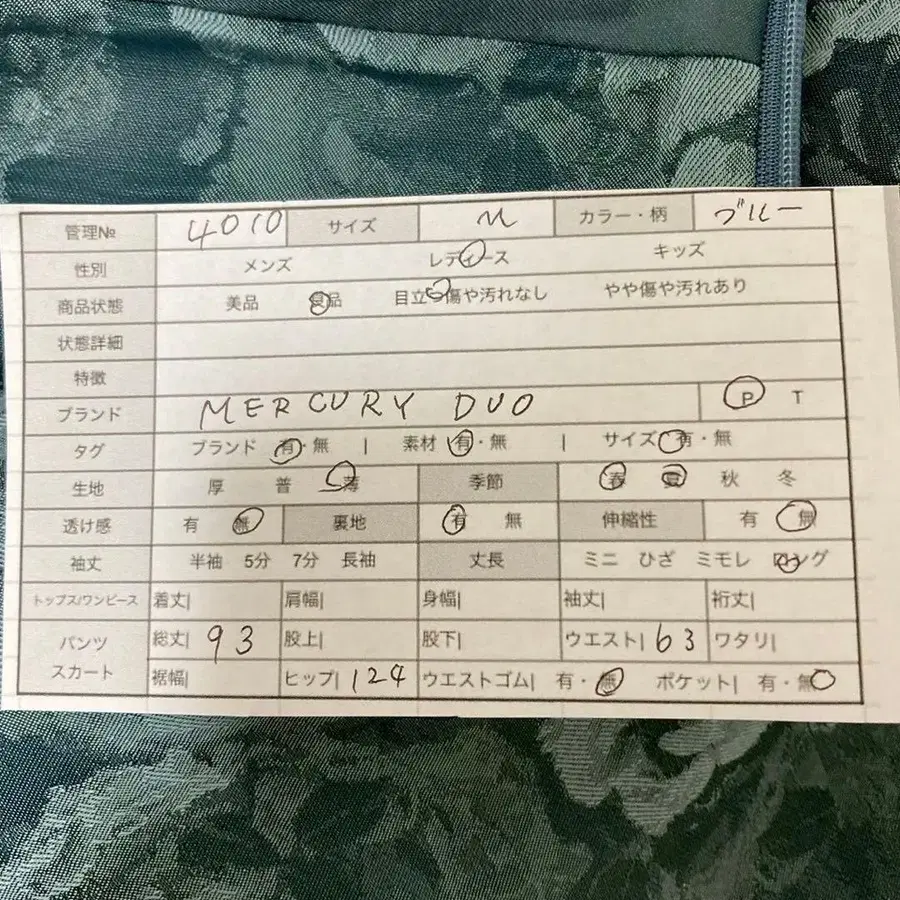 管理№ 4010 サイズ M カラー・柄 ブルー
性別 メンズ レディース キッズ
商品状態 美品 良品 目立つ傷や汚れなし やや傷や汚れあり
状態詳細
特徴
ブランド MERCURY DUO P T
タグ ブランド 有・無 | 素材 有・無 | サイズ 有・無
生地 厚 普 薄 季節 春 夏 秋 冬
透け感 有 無 裏地 有 無 伸縮性 有 無
袖丈 半袖 5分 7分 長袖 丈長 ミニ ひざ ミモレ ロング
トップス/ワンピース 着丈| 肩幅| 身幅| 袖丈| 裄丈|
パンツ 総丈| 93 股上| 股下| ウエスト| 63 ワタリ|
スカート 裾幅| ヒップ| 124 ウエストゴム| 有・無 ポケット| 有・無